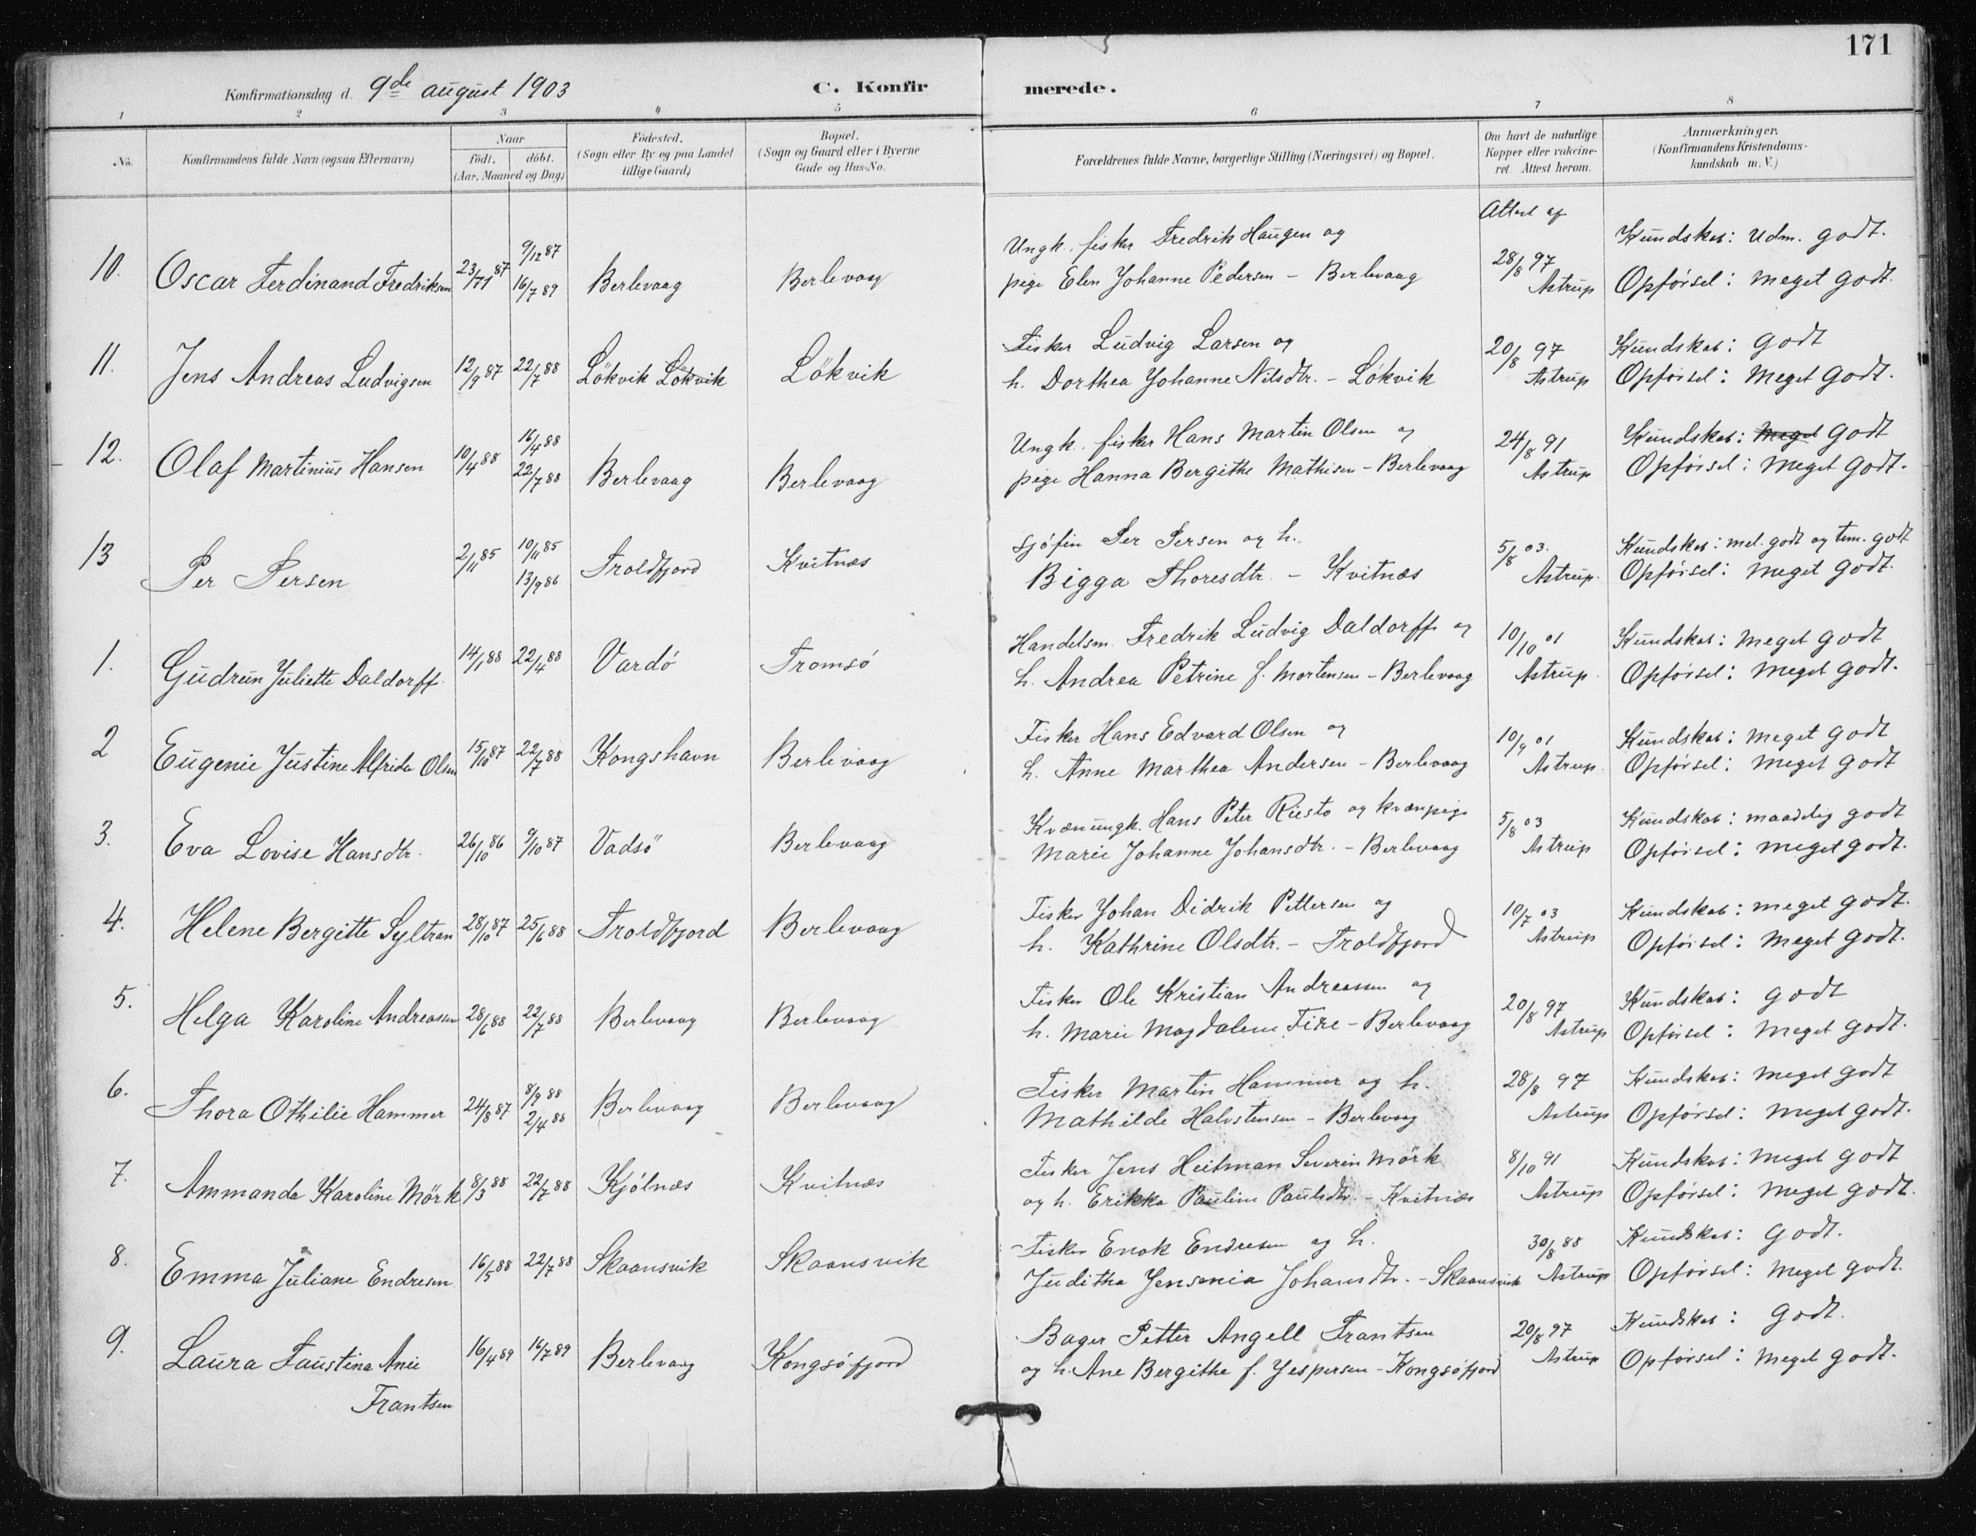 171
Konfirmationsdag d. 9de august 1903 C. Konfir merede.
1 2 3 4 5 6 7 8
No. Konfirmandens fulde Navn (ogsaa Efternavn) Naar født. døbt. (Aar, Maaned og Dag) Fødested. (Sogn eller By og paa Landet tillige Gaard) Bopæl. (Sogn og Gaard eller i Byerne Gade og Hus-No. Forældrenes fulde Navne, borgerlige Stilling (Næringsvei) og Bopæl. Om havt de naturlige Kopper eller vakcineret. Attest herom. Anmærkninger. (Konfirmandens Kristendomskundskab m. V.)
Attest af
9/12 87 Ungk. fisker Fredrik Haugen og Kundskab: Udm. godt.
10. Oscar Ferdinand Fredriksen 23/11 87 16/7 89 Berlevaag Berlevaag pige Elen Johanne Pedersen - Berlevaag 28/8 97 Astrup Opførsel: meget godt.
Fisker Ludvig Larsen og Kundskab: godt
11. Jens Andreas Ludvigsen 12/9 87 22/7 88 Lökvik Lökvik Lökvik h. Dorthea Johanne Nilsdtr. - Lökvik 20/8 97 Astrup Opførsel: meget godt.
16/4 88 Ungk. fisker Hans Martin Olsen og Kundskab: meget godt
12. Olaf Martinius Hansen 10/4 88 22/7 88 Berlevaag Berlevaag pige Hanna Bergithe Mathisen - Berlevaag 24/8 91 Astrup Opførsel: meget godt.
10/11 85 sjøfin Per Persen og h. Kundskab: mel. godt og tem. godt
13 Per Persen 2/11 85 13/9 86 Troldfjord Kvitnæs Bigga Thoresdtr. - Kvitnæs 5/8 03. Astrup. Opførsel: meget godt.
Handelsm. Fredrik Ludvig Daldorff og Kundskab: meget godt
1. Gudrun Juliette Daldorff. 14/1 88 22/4 88 Vardö Tromsö h. Andrea Petrine f. Mortensen - Berlevaag 10/10 01 Astrup. Opførsel: meget godt.
Fisker Hans Edvard Olsen og Kundskab: meget godt
2 Eugenie Justine Alfrida Olsen 15/10 87 22/7 88 Kongshavn Berlevaag h. Anne Marthea Andersen - Berlevaag 10/9 01 Astrup. Opførsel: meget godt
Kvænungk. Hans Peter Riesto og kvænpige Kundskab: maadelig godt
3. Eva Lovise Hansdtr. 26/10 86 9/10 87 Vadsö Berlevaag Marie Johanne Johansdtr. - Berlevaag 5/8 03 Astrup Opførsel: meget godt.
Fisker Johan Didrik Pettersen og Kundskab: meget godt.
4. Helene Bergitte Syltran 28/10 87 25/6 88 Troldfjord Berlevaag h. Kathrine Olsdtr. - Troldfjord 10/7 03 Astrup Opførsel: meget godt.
Fisker Ole Kristian Andreassen og Kundskab: godt
5. Helga Karoline Andreassen 28/6 88 22/7 88 Berlevaag Berlevaag h. Marie Magdalene - Berlevaag 20/8 97 Astrup Opførsel: meget godt.
8/9 88 Fisker Martin Hammer og h. Kundskab: meget godt
6. Thora Othilie Hammer 24/8 87 2/4 88 Berlevaag Berlevaag Mathilde Halvstensen - Berlevaag 28/8 97 Astrup Opførsel: meget godt.
Fisker Jens Heitman Severin Mörk Kundskab: meget godt
7. Ammanda Karoline Mörk 8/3 88 22/7 88 Kjölnæs Kvitnæs og h. Erikka Pauline Paulsdtr. - Kvitnæs 8/10 91 Astrup Opførsel: meget godt.
Fisker Enok Endresen og h. Kundskab: godt.
8. Emma Juliane Endresen 16/5 88 22/7 88 Skaansvik Skaansvik Juditha Jensenia Johansdtr. - Skaansvik 30/8 88 Astrup Opførsel: meget godt.
Bager Petter Angell Frantsen Kundskab: godt.
9. Laura Faustina Anie 16/4 89 16/7 89 Berlevaag Kongsöfjord og h. Ane Bergithe f. Jespersen - Kongsöfjord 20/8 97 Astrup Opførsel: meget godt.
Frantsen